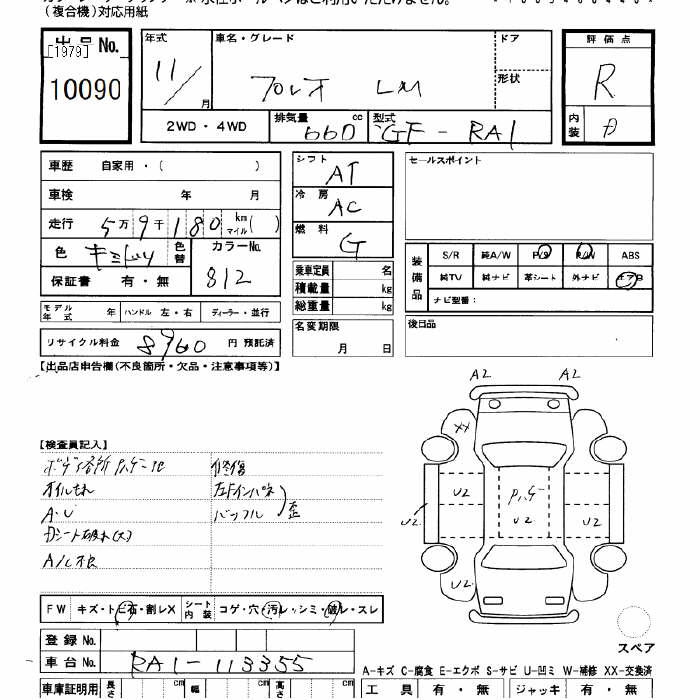 (複合機)対応用紙
出品No.
[1979]
10090
年式 11/ 月
車名・グレード プレオ LM
ドア
形状
評価点 R
内装 D
2WD・4WD
排気量 660 cc
型式 GF-RA1
車歴 自家用・( )
車検 年 月
走行 5万9千180 km マイル( )
色
色替
カラーNo. 812
保証書 有・無
モデル年式 年
ハンドル 左・右
ディーラー・並行
リサイクル料金 8960 円 預託済
シフト AT
冷房 AC
燃料 G
乗車定員 名
積載量 kg
総重量 kg
名変期限
月 日
セールスポイント
装備品
S/R 純A/W P/S P/W ABS
純TV 純ナビ 革シート 外ナビ エアB
ナビ型番:
後日品
【出品店申告欄(不良箇所・欠品・注意事項等)】
【検査員記入】
修復
オイルもれ
バックフル 歪
A・U
A2 A2
XX
U2 U2 U2 U2
U2
FW キズ・トビ石・割レX シート内装 コゲ・穴・汚レ・シミ・破レ・スレ
スペア
登録No.
車台No. RA1-113355
A-キズ C-腐食 E-エクボ S-サビ U-凹ミ W-補修 XX-交換済
車庫証明用 長さ cm 幅 cm 高さ cm
工具 有・無 ジャッキ 有・無